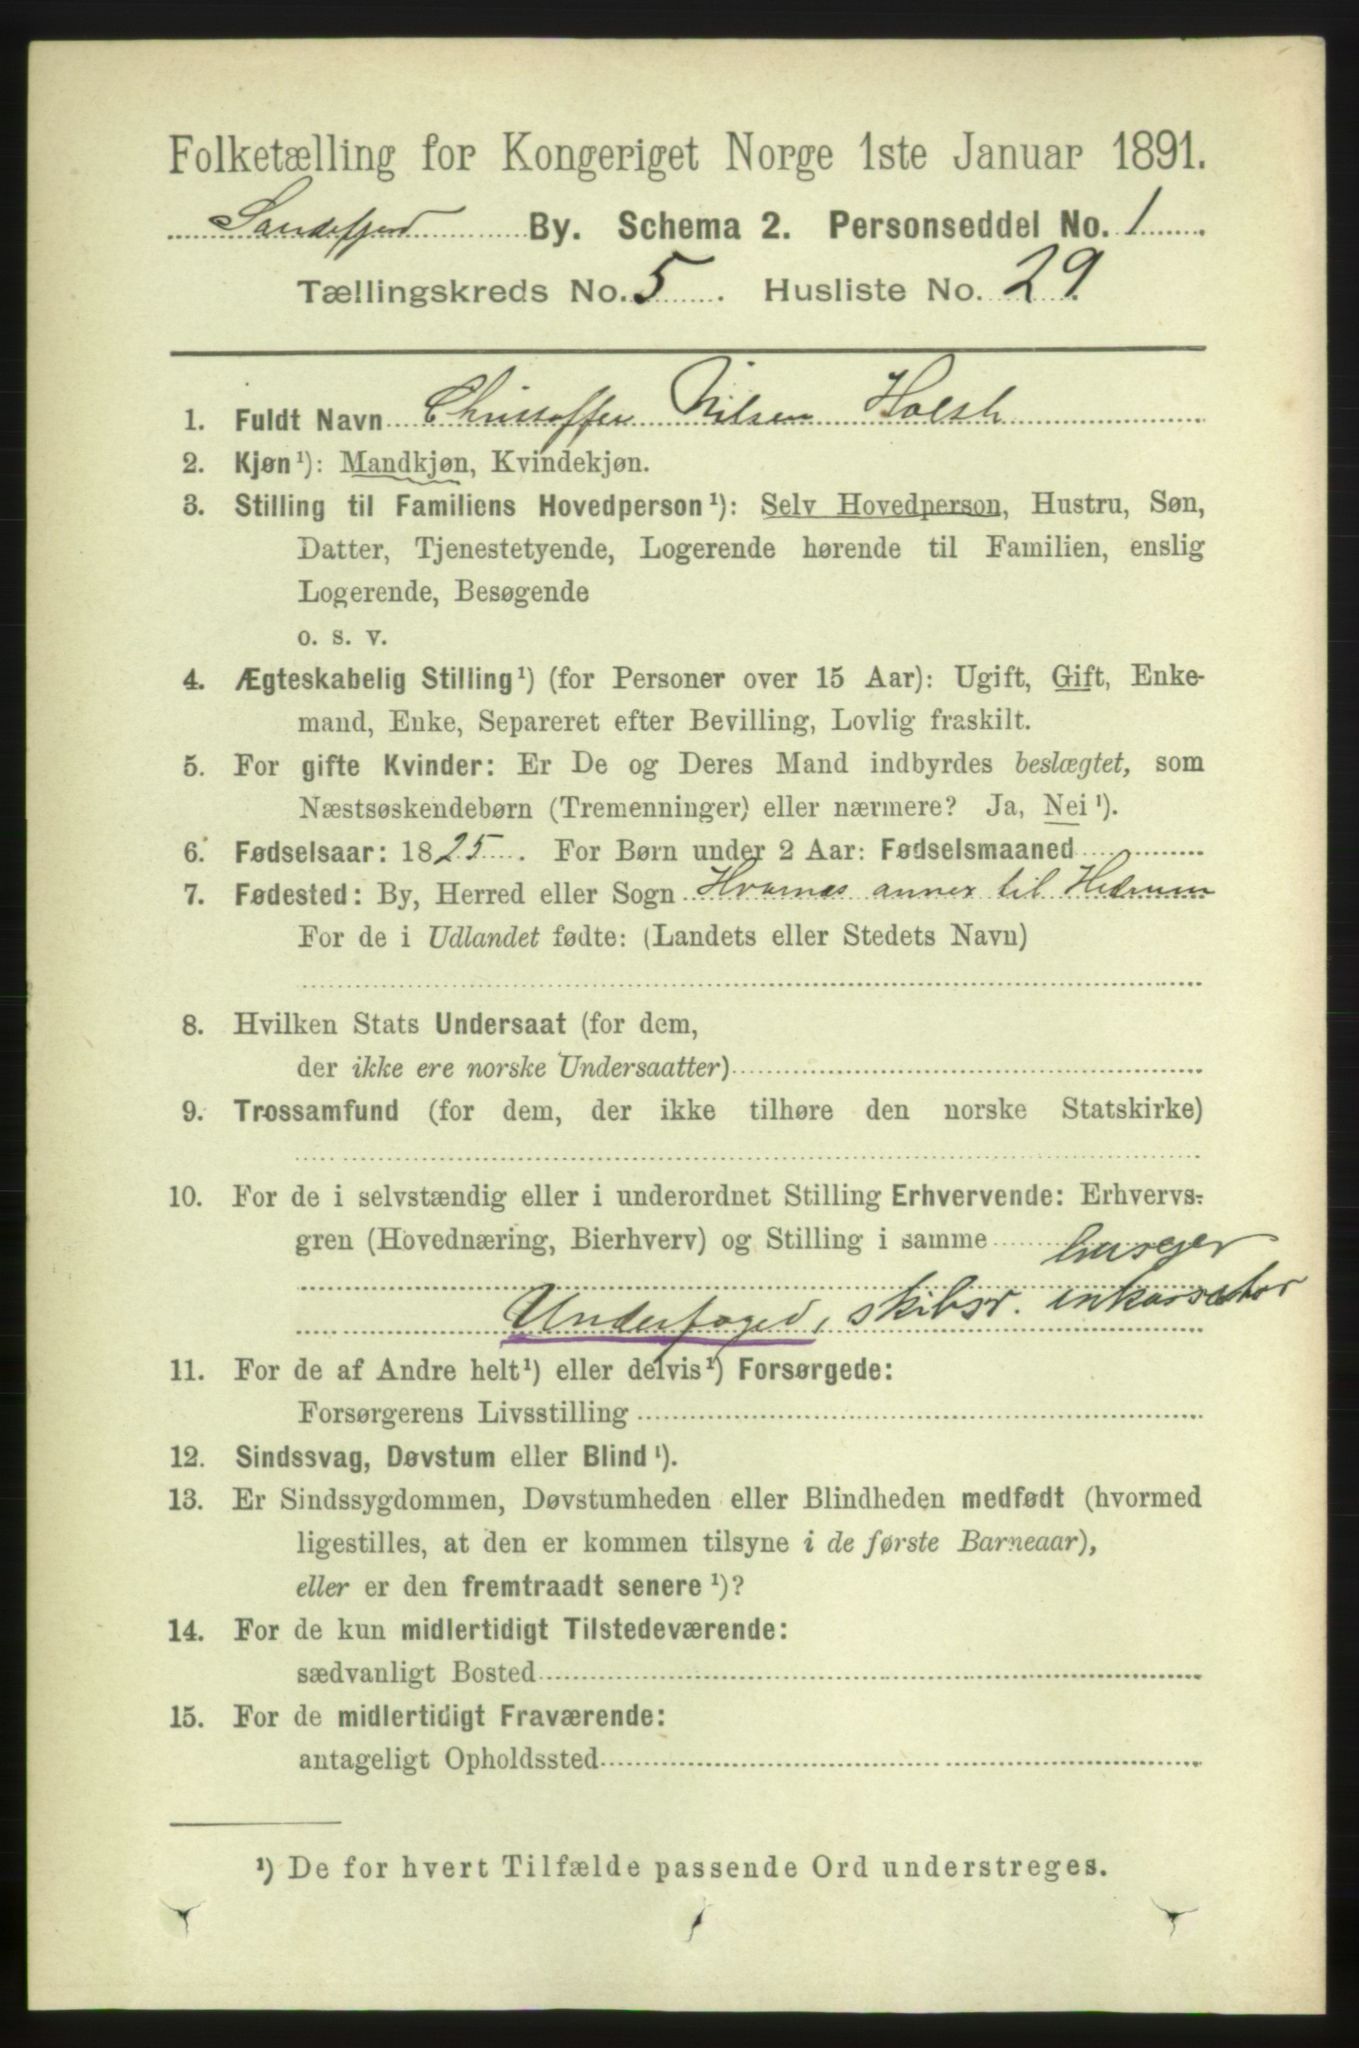 Folketælling for Kongeriget Norge 1ste Januar 1891.
Sandefjord By. Schema 2. Personseddel No. 1
Tællingskreds No. 5. Husliste No. 29.
1. Fuldt Navn Christoffer Nilsen Holst
2. Kjøn¹): Mandkjøn, Kvindekjøn.
3. Stilling til Familiens Hovedperson¹): Selv Hovedperson, Hustru, Søn,
Datter, Tjenestetyende, Logerende hørende til Familien, enslig
Logerende, Besøgende
o. s. v.
4. Ægteskabelig Stilling¹) (for Personer over 15 Aar): Ugift, Gift, Enke-
mand, Enke, Separeret efter Bevilling, Lovlig fraskilt.
5. For gifte Kvinder: Er De og Deres Mand indbyrdes beslægtet, som
Næstsøskendebørn (Tremenninger) eller nærmere? Ja, Nei¹).
6. Fødselsaar: 1825. For Børn under 2 Aar: Fødselsmaaned
7. Fødested: By, Herred eller Sogn Hvarnes annex til Hedrum
For de i Udlandet fødte: (Landets eller Stedets Navn)
8. Hvilken Stats Undersaat (for dem,
der ikke ere norske Undersaatter)
9. Trossamfund (for dem, der ikke tilhøre den norske Statskirke)
10. For de i selvstændig eller i underordnet Stilling Erhvervende: Erhvervs-
gren (Hovednæring, Bierhverv) og Stilling i samme husejer
Underfoged, skibsr. inkassator
11. For de af Andre helt¹) eller delvis¹) Forsørgede:
Forsørgerens Livsstilling
12. Sindssvag, Døvstum eller Blind¹).
13. Er Sindssygdommen, Døvstumheden eller Blindheden medfødt (hvormed
ligestilles, at den er kommen tilsyne i de første Barneaar),
eller er den fremtraadt senere¹)?
14. For de kun midlertidigt Tilstedeværende:
sædvanligt Bosted
15. For de midlertidigt Fraværende:
antageligt Opholdssted
¹) De for hvert Tilfælde passende Ord understreges.